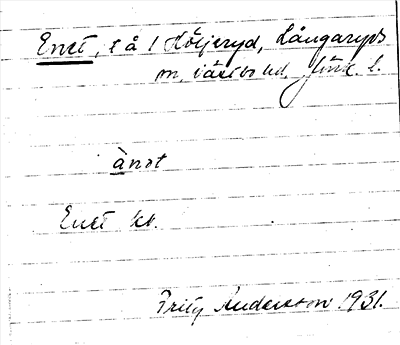 Enet, l å 1 Höljeryd, Långaryds
sn, Västbo hd, Jönk. l.
ànət
Enet kb.
Fritz Andersson 1931.